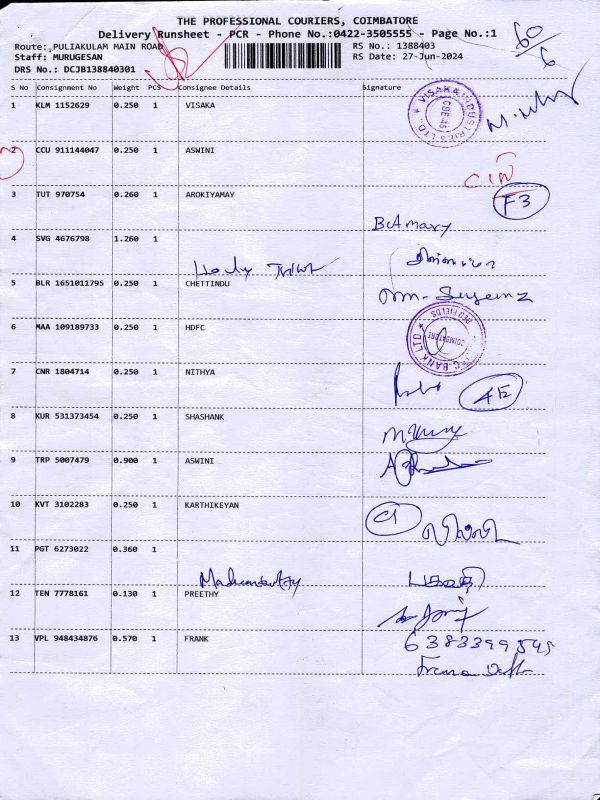 THE PROFESSIONAL COURIERS, COIMBATORE
Delivery Runsheet - PCR - Phone No.:0422-3505555 - Page No.:1
Route: PULIAKULAM MAIN ROAD RS No.: 1388403
Staff: MURUGESAN RS Date: 27-Jun-2024
DRS No.: DCJB138840301
60/6
S No Consignment No Weight PCS Consignee Details Signature
1 KLM 1152629 0.250 1 VISAKA
VISAKA INDUSTRIES LTD. CBE-45
2 CCU 911144047 0.250 1 ASWINI
3 TUT 970754 0.260 1 AROKIYAMAY
F3
4 SVG 4676798 1.260 1
5 BLR 1651011795 0.250 1 CHETTINDU
6 MAA 109189733 0.250 1 HDFC
BANK LTD COIMBATORE RED FIELDS
7 CNR 1804714 0.250 1 NITHYA
AE
8 KUR 531373454 0.250 1 SHASHANK
9 TRP 5007479 0.900 1 ASWINI
10 KVT 3102283 0.250 1 KARTHIKEYAN
C1
11 PGT 6273022 0.360 1
12 TEN 7778161 0.130 1 PREETHY
13 VPL 948434876 0.570 1 FRANK